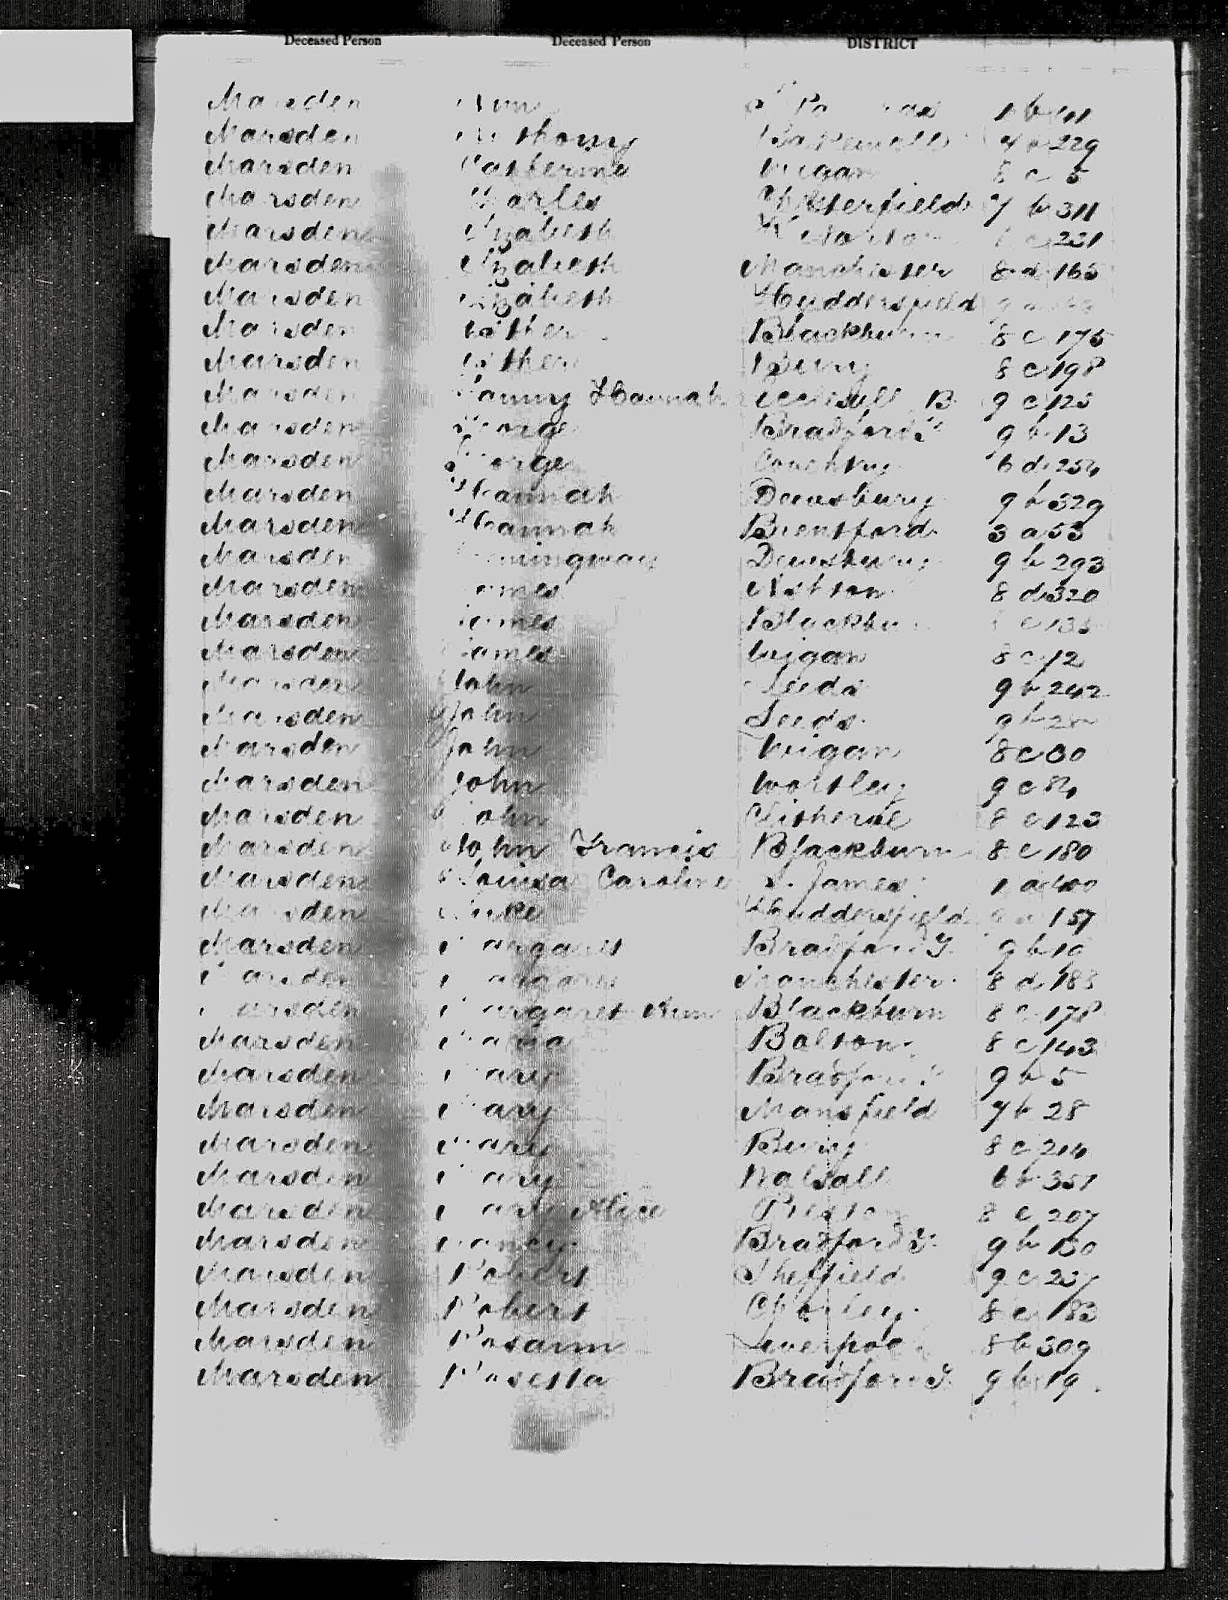 Deceased Person Deceased Person DISTRICT
Marsden Ann
Marsden Anthony Bakewell
Marsden Catherine Wigan 8 c 5
Marsden Charles Chesterfield 7 b 311
Marsden Elizabeth 231
Marsden Elizabeth Manchester 8 d 165
Marsden Elizabeth Huddersfield
Marsden Esther Blackburn 8 c 175
Marsden Esther Bury 8 c 198
Marsden Fanny Hannah Ecclesall B. 9 c 125
Marsden George Bradford Y. 9 b 13
Marsden George Coventry 6 d 254
Marsden Hannah Dewsbury 9 b 329
Marsden Hannah Brentford 3 a 53
Marsden Dewsbury 9 b 293
Marsden James Ashton 8 d 320
Marsden James Blackbu
Marsden James Wigan 8 c 12
Marsden John Leeds 9 b 242
Marsden John Leeds 9 b
Marsden John Wigan 8 c 30
Marsden John Wortley 9 c 84
Marsden John Clitheroe 8 e 123
Marsden John Francis Blackburn 8 c 180
Marsden Louisa Caroline S. James 1 a 400
Marsden Luke Huddersfield 157
Marsden Margaret Bradford Y. 9 b 10
Marsden Margaret Manchester 8 d 183
Marsden Margaret Ann Blackburn 8 c 178
Marsden Maria Bolton 8 c 143
Marsden Mary Bradford Y. 9 b 5
Marsden Mary Mansfield 7 b 28
Marsden Mary Bury 8 c 214
Marsden Mary Walsall 6 b 351
Marsden Mary Alice Preston 8 e 207
Marsden Nancy Bradford Y. 9 b 130
Marsden Robert Sheffield 9 c 237
Marsden Robert Chorley 8 e 183
Marsden Rosann Liverpool 8 b 309
Marsden Rosetta Bradford Y. 9 b 19.